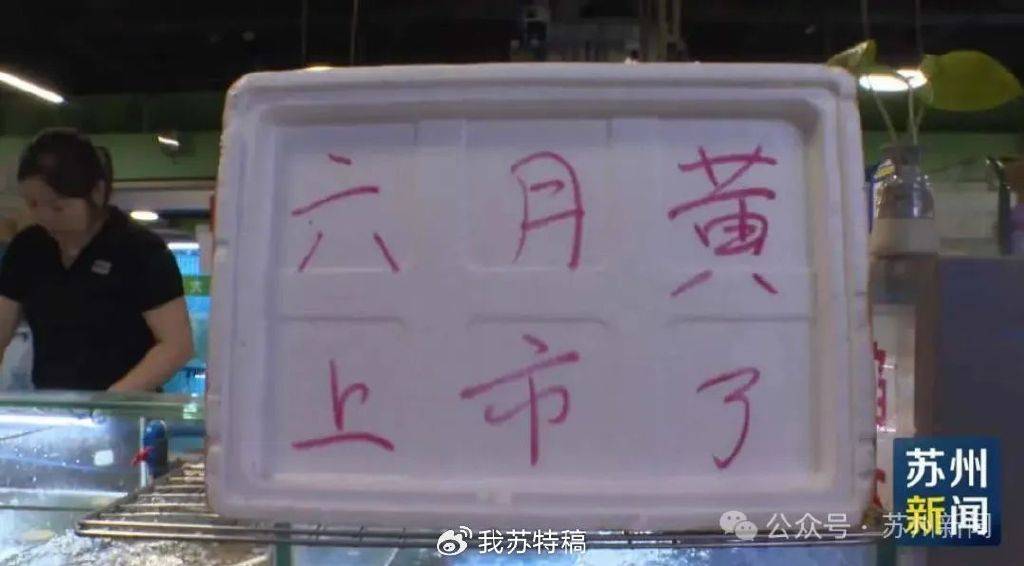 六月黄
上市了
苏州
新闻
公众号·苏州新闻
我苏特稿